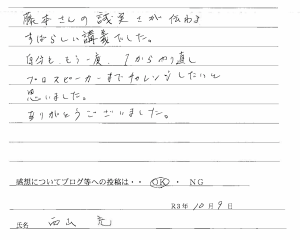 藤本さんの誠実さが伝わる
すばらしい講義でした。
自分も、もう一度、1からやり直し
プロスピーカーまでチャレンジしたいと
思いました。
ありがとうございました。
感想についてブログ等への投稿は・・ OK ・ NG
R3年 10月 9日
氏名 西山 充